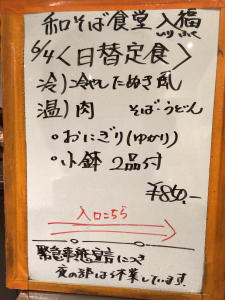 和そば食堂 入福
6/4＜日替定食＞
冷)冷やしたぬき風
温)肉 そば・うどん
・おにぎり(ゆかり)
・小鉢 2品付
￥860.-
入口こちら
緊急事態宣言につき
夜の部は休業しています